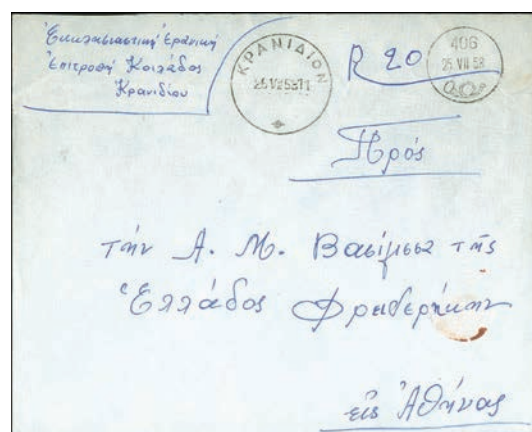 Ἐκκλησιαστική Ἐρανική
Ἐπιτροπή Κοιλάδος
Κρανιδίου
ΚΡΑΝΙΔΙΟΝ
R 20
406
25 VII 58
Πρός
τήν Α. Μ. Βασίλισσα τῆς
Ἑλλάδος Φρειδερήκην
εἰς Ἀθήνας